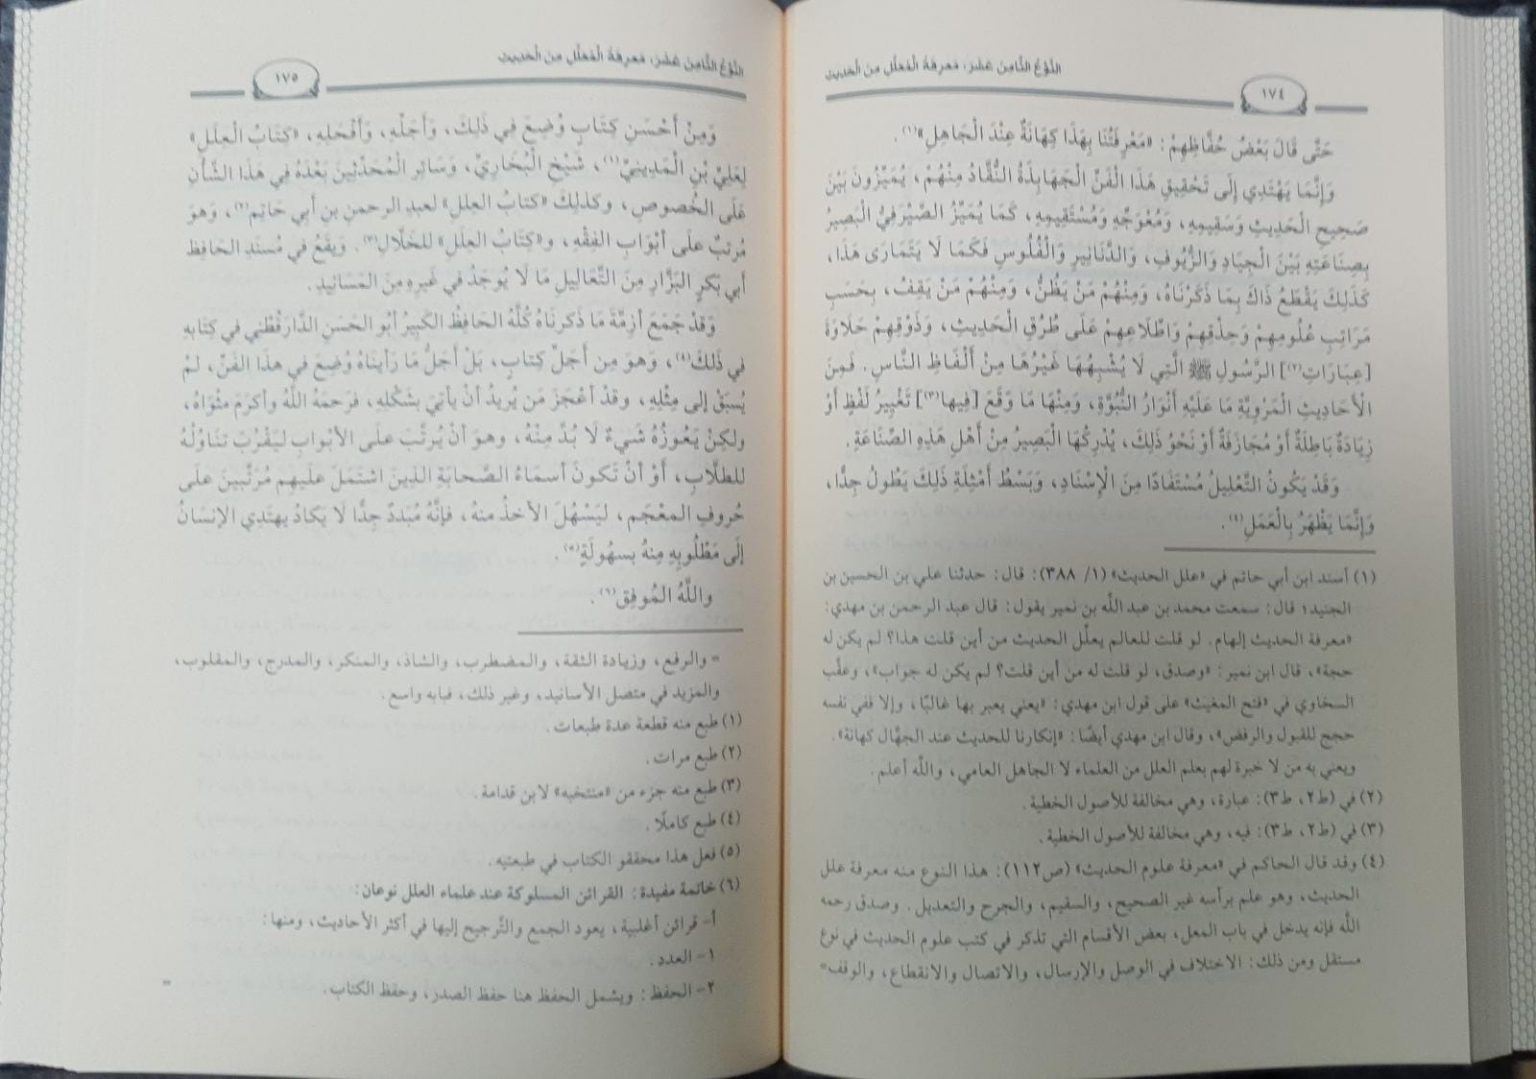 النَّوْعُ الثَّامِنَ عَشَرَ: مَعرِفَةُ الْمُعَلَّلِ مِنَ الْحَدِيثِ
١٧٤
حَتَّى قَالَ بَعْضُ حُفَّاظِهِمْ: «مَعْرِفَتُنَا بِهَذَا كِهَانَةٌ عِنْدَ الْجَاهِلِ»(١).
وَإِنَّمَا يَهْتَدِي إِلَى تَحْقِيقِ هَذَا الْفَنِّ الْجَهَابِذَةُ النُّقَّادُ مِنْهُمْ، يُمَيِّزُونَ بَيْنَ
صَحِيحِ الْحَدِيثِ وَسَقِيمِهِ، وَمُعْوَجِّهِ وَمُسْتَقِيمِهِ، كَمَا يُمَيِّزُ الصَّيْرَفِيُّ الْبَصِيرُ
بِصِنَاعَتِهِ بَيْنَ الْجِيَادِ وَالزُّيُوفِ، وَالدَّنَانِيرِ وَالْفُلُوسِ فَكَمَا لَا يَتَمَارَى هَذَا،
كَذَلِكَ يَقْطَعُ ذَاكَ بِمَا ذَكَرْنَاهُ، وَمِنْهُمْ مَنْ يَظُنُّ، وَمِنْهُمْ مَنْ يَقِفُ، بِحَسَبِ
مَرَاتِبِ عُلُومِهِمْ وَحِذْقِهِمْ وَاطِّلَاعِهِمْ عَلَى طُرُقِ الْحَدِيثِ، وَذَوْقِهِمْ حَلَاوَةَ
[عِبَارَاتِ(٢)] الرَّسُولِ ﷺ الَّتِي لَا يُشْبِهُهَا غَيْرُهَا مِنْ أَلْفَاظِ النَّاسِ. فَمِنَ
الْأَحَادِيثِ الْمَرْوِيَّةِ مَا عَلَيْهِ أَنْوَارُ النُّبُوَّةِ، وَمِنْهَا مَا وَقَعَ [فِيها(٣)] تَغْيِيرُ لَفْظٍ أَوْ
زِيَادَةٌ بَاطِلَةٌ أَوْ مُجَازَفَةٌ أَوْ نَحْوُ ذَلِكَ، يُدْرِكُهَا الْبَصِيرُ مِنْ أَهْلِ هَذِهِ الصِّنَاعَةِ.
وَقَدْ يَكُونُ التَّعْلِيلُ مُسْتَفَادًا مِنَ الْإِسْنَادِ، وَبَسْطُ أَمْثِلَةِ ذَلِكَ يَطُولُ جِدًّا،
وَإِنَّمَا يَظْهَرُ بِالْعَمَلِ(٤).
(١) أسند ابن أبي حاتم في «علل الحديث» (١/ ٣٨٨): قال: حدثنا علي بن الحسين بن
الجنيد؛ قال: سمعت محمد بن عبد اللَّه بن نمير يقول: قال عبد الرحمن بن مهدي:
«معرفة الحديث إلهام. لو قلت للعالم يعلّل الحديث من أين قلت هذا؟ لم يكن له
حجة»، قال ابن نمير: «وصدق، لو قلت له من أين قلت؟ لم يكن له جواب»، وعقّب
السخاوي في «فتح المغيث» على قول ابن مهدي: «يعني يعبر بها غالبًا، وإلا ففي نفسه
حجج للقبول والرفض»، وقال ابن مهدي أيضًا: «إنكارنا للحديث عند الجهَّال كهانة».
ويعني به من لا خبرة لهم بعلم العلل من العلماء لا الجاهل العامي، واللَّه أعلم.
(٢) في (ط٢، ط٣): عبارة، وهي مخالفة للأصول الخطية.
(٣) في (ط٢، ط٣): فيه، وهي مخالفة للأصول الخطية.
(٤) وقد قال الحاكم في «معرفة علوم الحديث» (ص١١٢): هذا النوع منه معرفة علل
الحديث، وهو علم برأسه غير الصحيح، والسقيم، والجرح والتعديل. وصدق رحمه
اللَّه فإنه يدخل في باب المعل، بعض الأقسام التي تذكر في كتب علوم الحديث في نوع
مستقل ومن ذلك: الاختلاف في الوصل والإرسال، والاتصال والانقطاع، والوقف=
النَّوْعُ الثَّامِنَ عَشَرَ: مَعرِفَةُ الْمُعَلَّلِ مِنَ الْحَدِيثِ
١٧٥
وَمِنْ أَحْسَنِ كِتَابٍ وُضِعَ فِي ذَلِكَ، وَأَجَلِّهِ، وَأَفْحَلِهِ، «كِتَابُ الْعِلَلِ»
لِعَلِيِّ بْنِ الْمَدِينِيِّ(١)، شَيْخِ الْبُخَارِيِّ، وَسَائِرِ الْمُحَدِّثِينَ بَعْدَهُ فِي هَذَا الشَّأْنِ
عَلَى الخُصوصِ، وكذلِكَ «كتابُ العِلل» لعبدِ الرحمنِ بن أبي حَاتِم(٢)، وَهوَ
مُرتبٌ علَى أَبْوَابِ الفِقْهِ، و«كِتَابُ العِلَلِ» للخَلَّالِ(٣). وَيقَعُ في مُسنَدِ الحَافِظِ
أبي بَكرٍ البَزَّارِ مِنَ التَّعَالِيلِ مَا لَا يُوجَدُ في غَيرِهِ مِنَ المَسَانِيدِ.
وَقَدْ جَمَعَ أَزِمَّةَ مَا ذَكرنَاهُ كُلَّهُ الحَافِظُ الكَبِيرُ أبُو الحَسَنِ الدَّارَقُطْنِي في كِتَابِهِ
فِي ذَلكَ(٤)، وَهوَ مِن أَجَلِّ كِتابٍ، بَلْ أَجَلُّ مَا رَأيناهُ وُضِعَ في هذَا الفَنِّ، لَمْ
يُسبَقْ إلى مِثْلِهِ، وقدْ أعْجَزَ مَن يُرِيدُ أَنْ يأتيَ بشَكْلِهِ، فرَحمَهُ اللَّهُ وأكرمَ مثْوَاهُ،
ولكِنْ يَعُوزُهُ شَيءٌ لَا بُدَّ مِنْهُ، وهوَ أنْ يُرتَّبَ علَى الأبْوابِ ليَقْرُبَ تنَاوُلُهُ
للطلَّابِ، أَوْ أنْ تَكونَ أسمَاءُ الصَّحابَةِ الذِينَ اشتمَلَ علَيهِم مُرَتَّبينَ علَى
حُروفِ المعْجَمِ، ليَسْهُلَ الأخذُ منهُ، فإنَّهُ مُبَددٌ جِدًّا لَا يَكادُ يهتَدِي الإنسَانُ
إلَى مَطْلُوبِهِ مِنهُ بسهُولَةٍ(٥).
واللَّهُ المُوفِق(٦).
= والرفع، وزيادة الثقة، والمضطرب، والشاذ، والمنكر، والمدرج، والمقلوب،
والمزيد في متصل الأسانيد، وغير ذلك، فبابه واسع.
(١) طبع منه قطعة عدة طبعات.
(٢) طبع مرات.
(٣) طبع منه جزء من «منتخبه» لابن قدامة.
(٤) طبع كاملًا.
(٥) فعل هذا محققو الكتاب في طبعتيه.
(٦) خاتمة مفيدة: القرائن المسلوكة عند علماء العلل نوعان:
أ- قرائن أغلبية، يعود الجمع والترجيح إليها في أكثر الأحاديث، ومنها:
١- العدد.
٢- الحفظ: ويشمل الحفظ هنا حفظ الصدر، وحفظ الكتاب. =